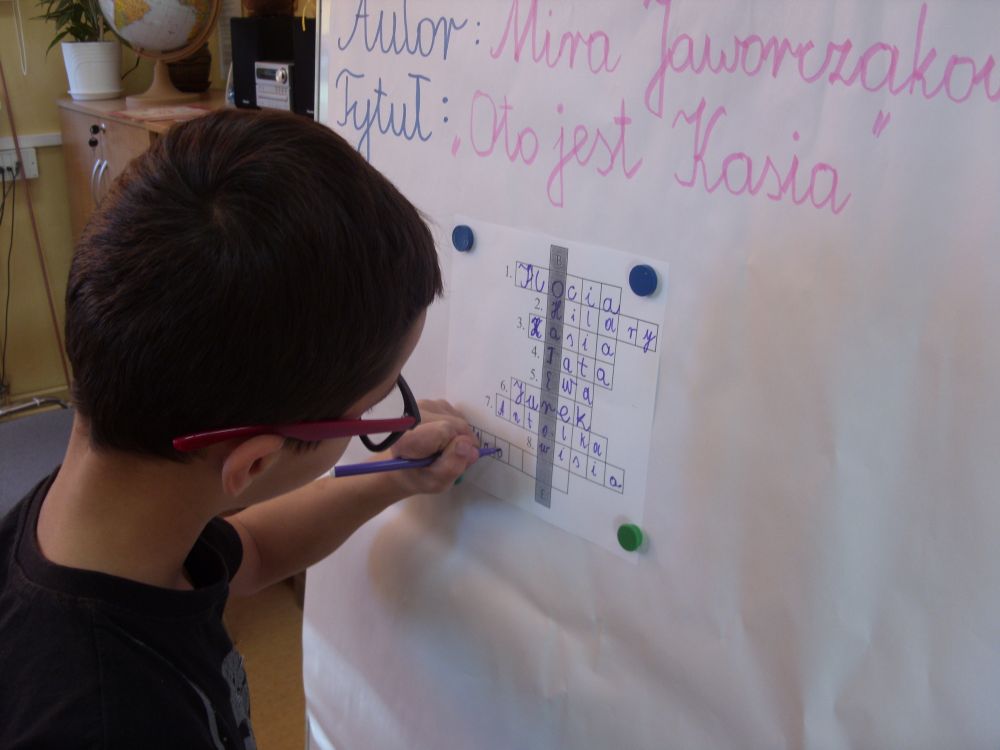 Autor: Mira Jaworczakow
Tytuł: „Oto jest Kasia"
B
1. Kocia
2. Hilary
3. Kasia
4. Tata
5. Ewa
6. Jurek
7. Antolka
8. Wisia
E